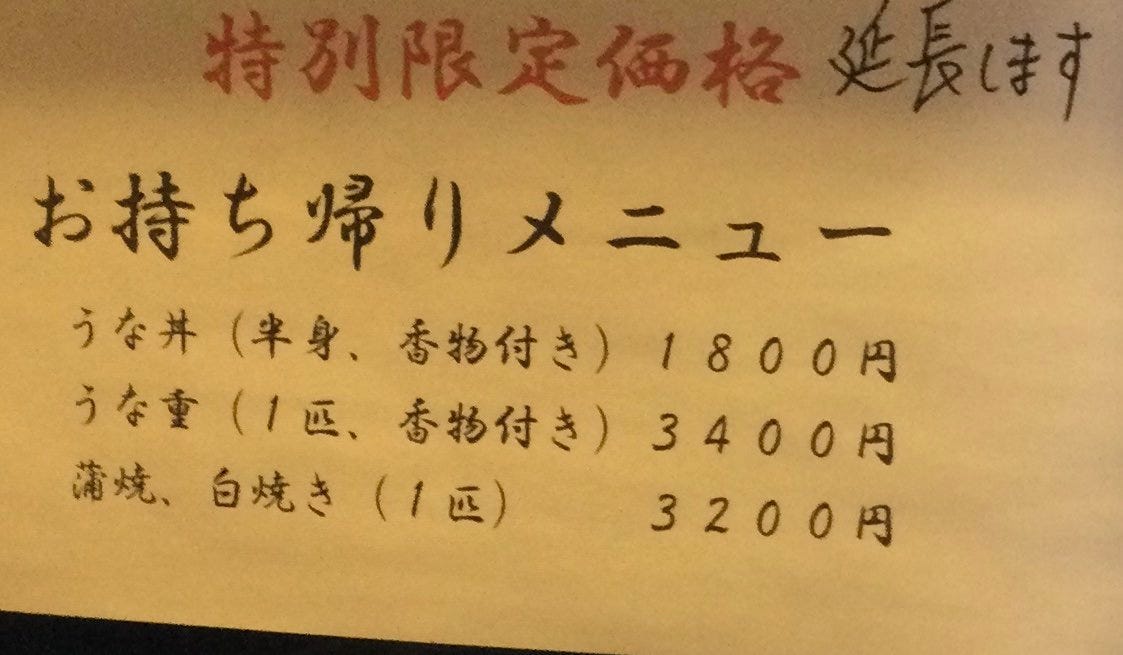 特別限定価格 延長します
お持ち帰りメニュー
うな丼（半身、香物付き）1800円
うな重（1匹、香物付き）3400円
蒲焼、白焼き（1匹） 3200円